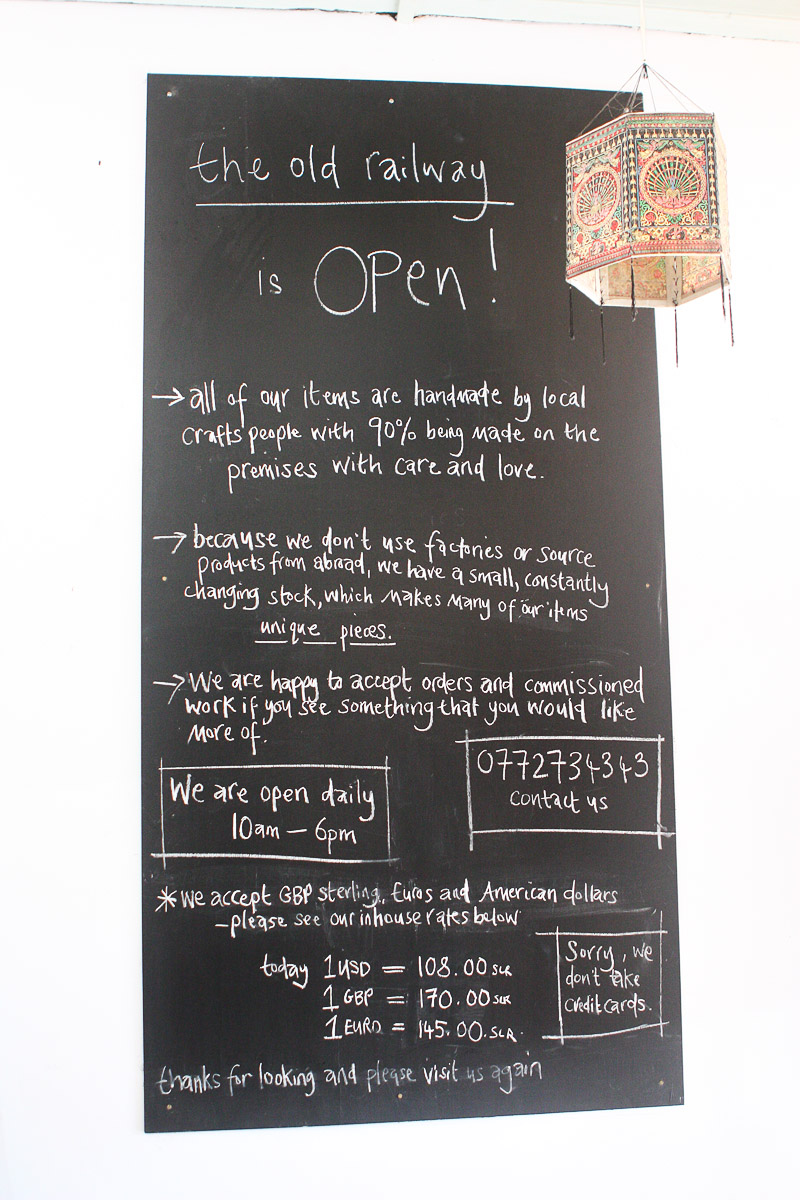 the old railway
is OPen!
→ all of our items are handmade by local
crafts people with 90% being made on the
premises with care and love.
→ because we don't use factories or source
products from abroad, we have a small, constantly
changing stock, which makes many of our items
unique pieces.
→ We are happy to accept orders and commissioned
work if you see something that you would like
more of.
0772734343
contact us
We are open daily
10am – 6pm
* We accept GBP sterling, Euros and American dollars
– please see our inhouse rates below
today 1 USD = 108.00 SLR
1 GBP = 170.00 SLR
1 EURO = 145.00. SLR.
Sorry, we
don't take
credit cards.
thanks for looking and please visit us again